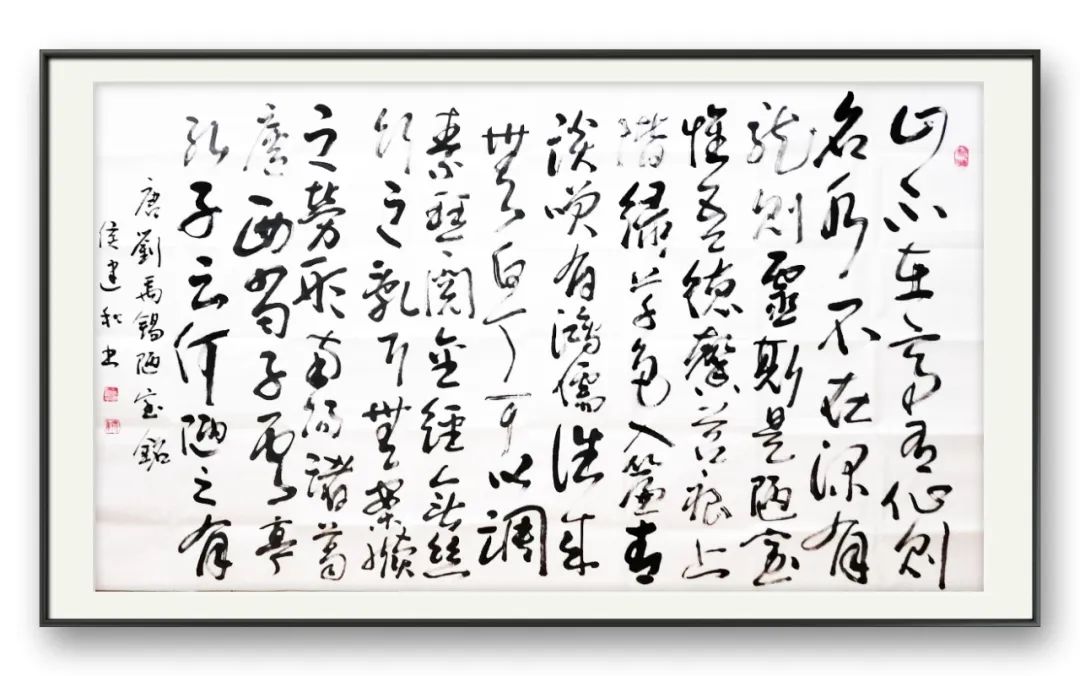 山不在高有仙則
名水不在深有
龍則靈斯是陋室
惟吾德馨苔痕上
階綠草色入簾青
談笑有鴻儒往来
無白丁可以調
素琴閱金經無絲
竹之亂耳無案牘
之勞形南陽諸葛
廬西蜀子雲亭
孔子云何陋之有
唐劉禹錫陋室銘
侯建 书